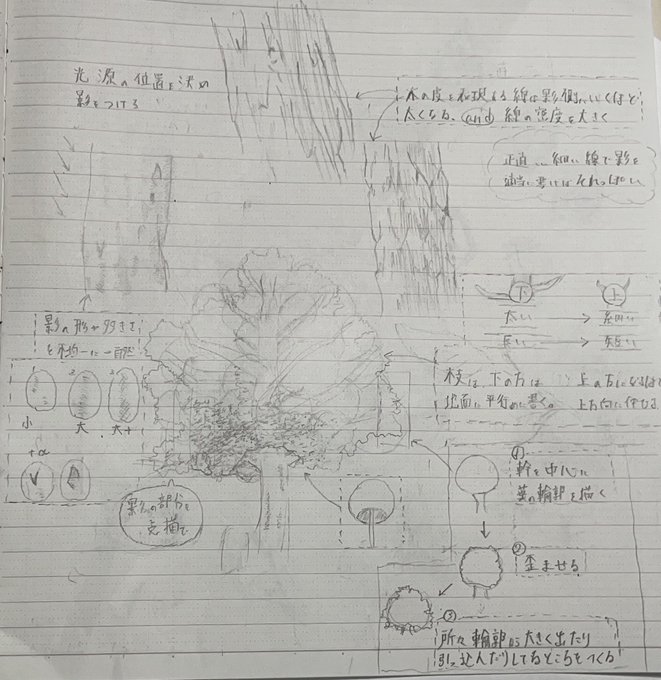 光源の位置を決め
影をつける
木の皮を表現する線は影側にいくほど
太くなる、and 線の密度を大きく
正直、細い線で影を
適当に書けばそれっぽい
下
上
太い → 細い
長い → 短い
影の形や大きさを
不均一に
小
大
大+
+α
枝は、下の方は
地面に平行めに書く。
上の方になるほど
上方向に伸びる
影の部分を
点描で
①
幹を中心に
葉の輪郭を描く
②
歪ませる
③
所々輪郭から大きく出たり
引っ込んだりしてるところをつくる